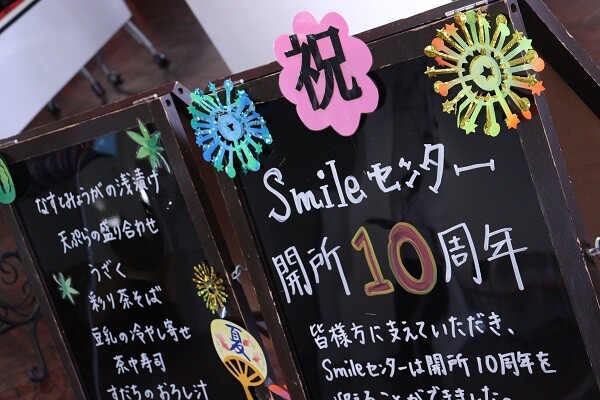 なすとみょうがの浅漬け
天ぷらの盛り合わせ
うざく
彩り茶そば
豆乳の冷やし寄せ
茶巾寿司
すだちのおろし汁
夏
祝
Smileセンター
開所10周年
皆様方に支えていただき、
Smileセンターは開所10周年を
迎えることができました。